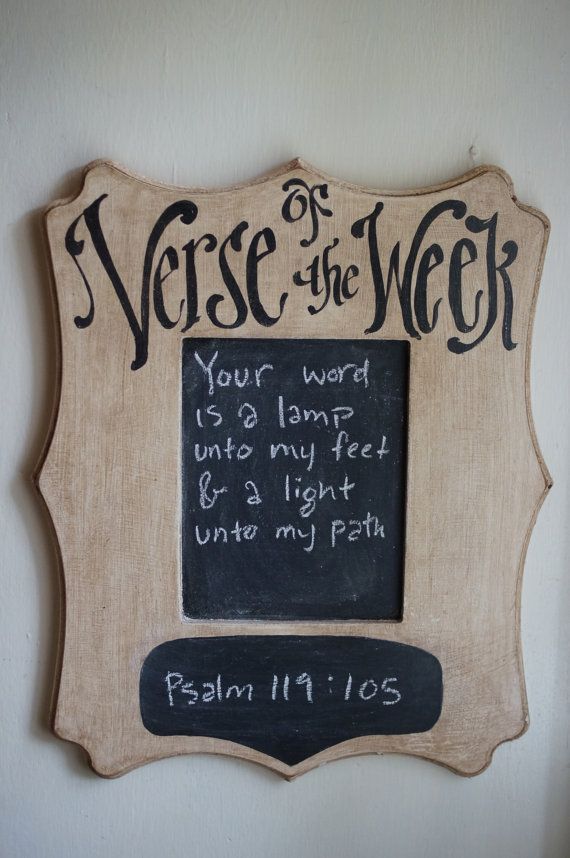 Verse of the Week
Your word
is a lamp
unto my feet
& a light
unto my path
Psalm 119:105